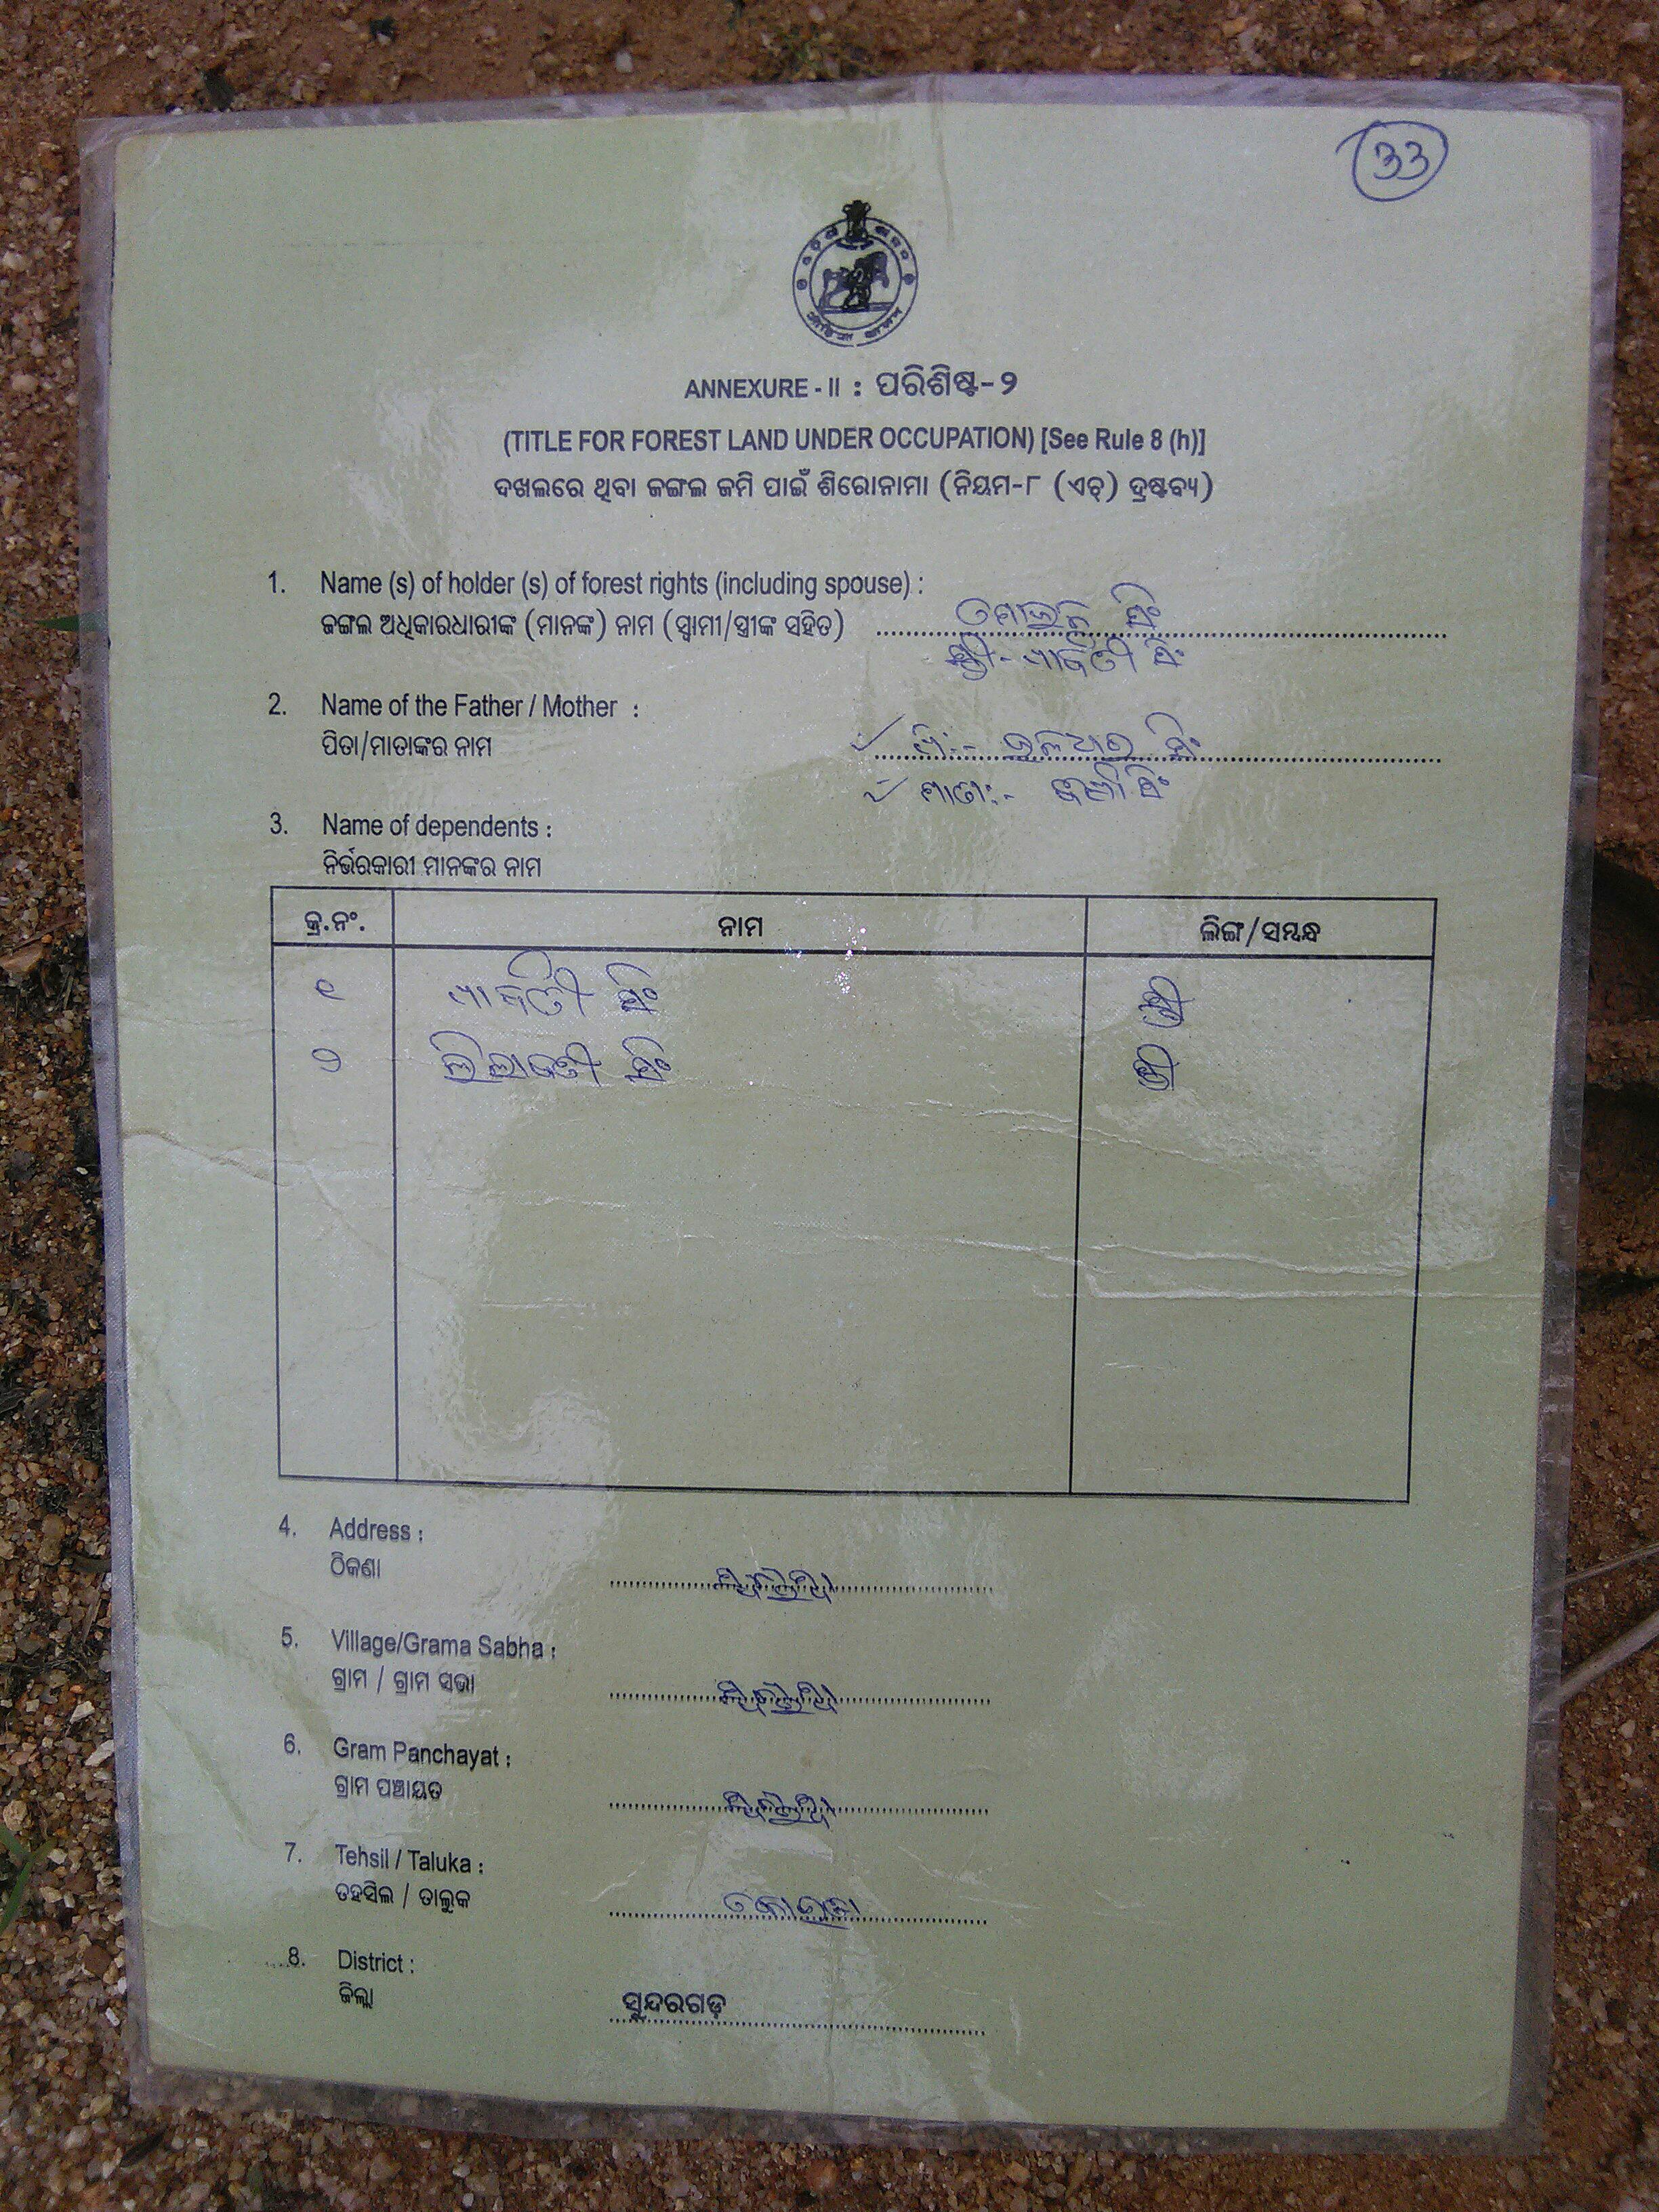 33
ANNEXURE - II : ପରିଶିଷ୍ଟ-୨
(TITLE FOR FOREST LAND UNDER OCCUPATION) [See Rule 8 (h)]
ଦଖଲରେ ଥିବା ଜଙ୍ଗଲ ଜମି ପାଇଁ ଶିରୋନାମା (ନିୟମ-୮ (ଏଚ୍) ଦ୍ରଷ୍ଟବ୍ୟ)
1. Name (s) of holder (s) of forest rights (including spouse) :
ଜଙ୍ଗଲ ଅଧିକାରଧାରୀଙ୍କ (ମାନଙ୍କ) ନାମ (ସ୍ୱାମୀ/ସ୍ତ୍ରୀଙ୍କ ସହିତ) ସିଂ
ସ୍ତ୍ରୀ:- ସିଂ
2. Name of the Father / Mother :
ପିତା/ମାତାଙ୍କର ନାମ ପି:- ସିଂ
ମାତା:- ସିଂ
3. Name of dependents :
ନିର୍ଭରକାରୀ ମାନଙ୍କର ନାମ
କ୍ର.ନଂ. ନାମ ଲିଙ୍ଗ/ସମ୍ବନ୍ଧ
୧ ସିଂ ସ୍ତ୍ରୀ
୨ ଲିଲାବତୀ ସିଂ
4. Address :
ଠିକଣା
5. Village/Grama Sabha :
ଗ୍ରାମ / ଗ୍ରାମ ସଭା
6. Gram Panchayat :
ଗ୍ରାମ ପଞ୍ଚାୟତ
7. Tehsil / Taluka :
ତହସିଲ / ତାଲୁକ
8. District :
ଜିଲ୍ଲା ସୁନ୍ଦରଗଡ଼